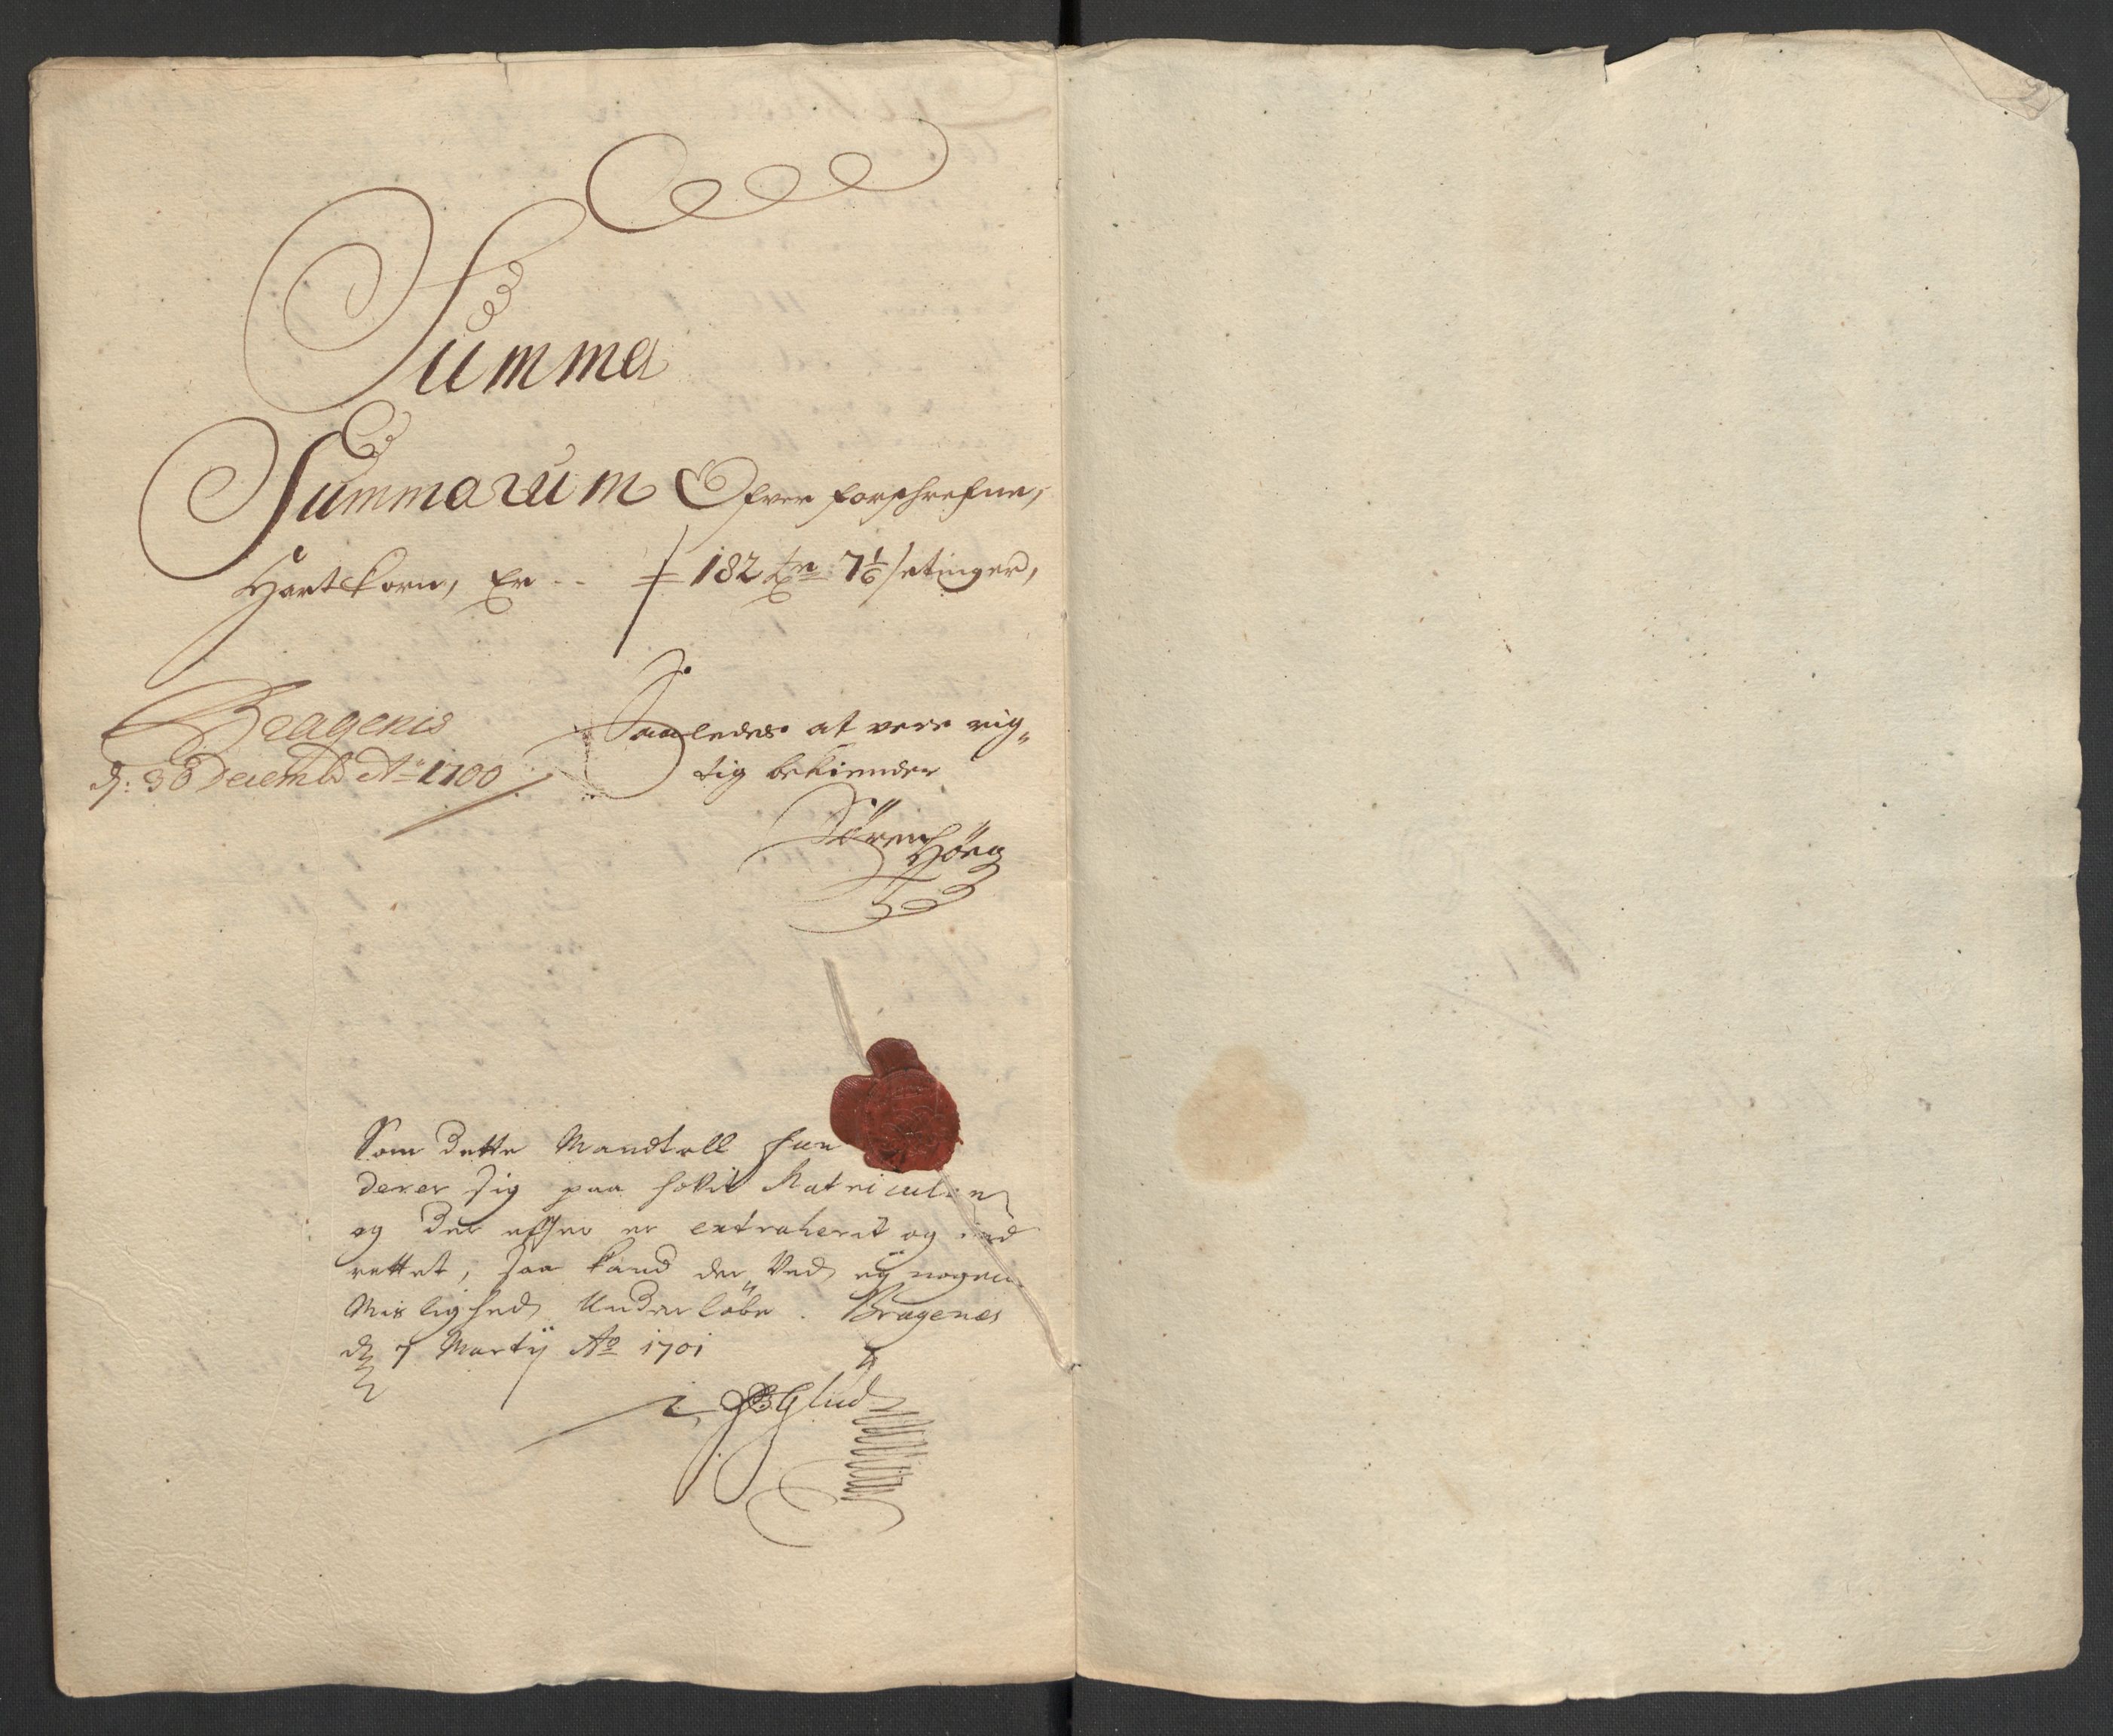 Summa
Summarum Ofver forschrefne,
Hartkorn, Er -- 182 tr 7 1/6 setinger,
Bragenis
d: 30 Decembr Ao 1700
Saaledes at vere rig„
tig bekiender
Sören Höeg
Som dette Mandtall fun
derer sig paa Matriculen
og der efter er extraherit og ind
rettet, saa kand der Ved ey nogen
Mislighed Underløbe. Bragenes
d 7 Martij Ao 1701
Glud